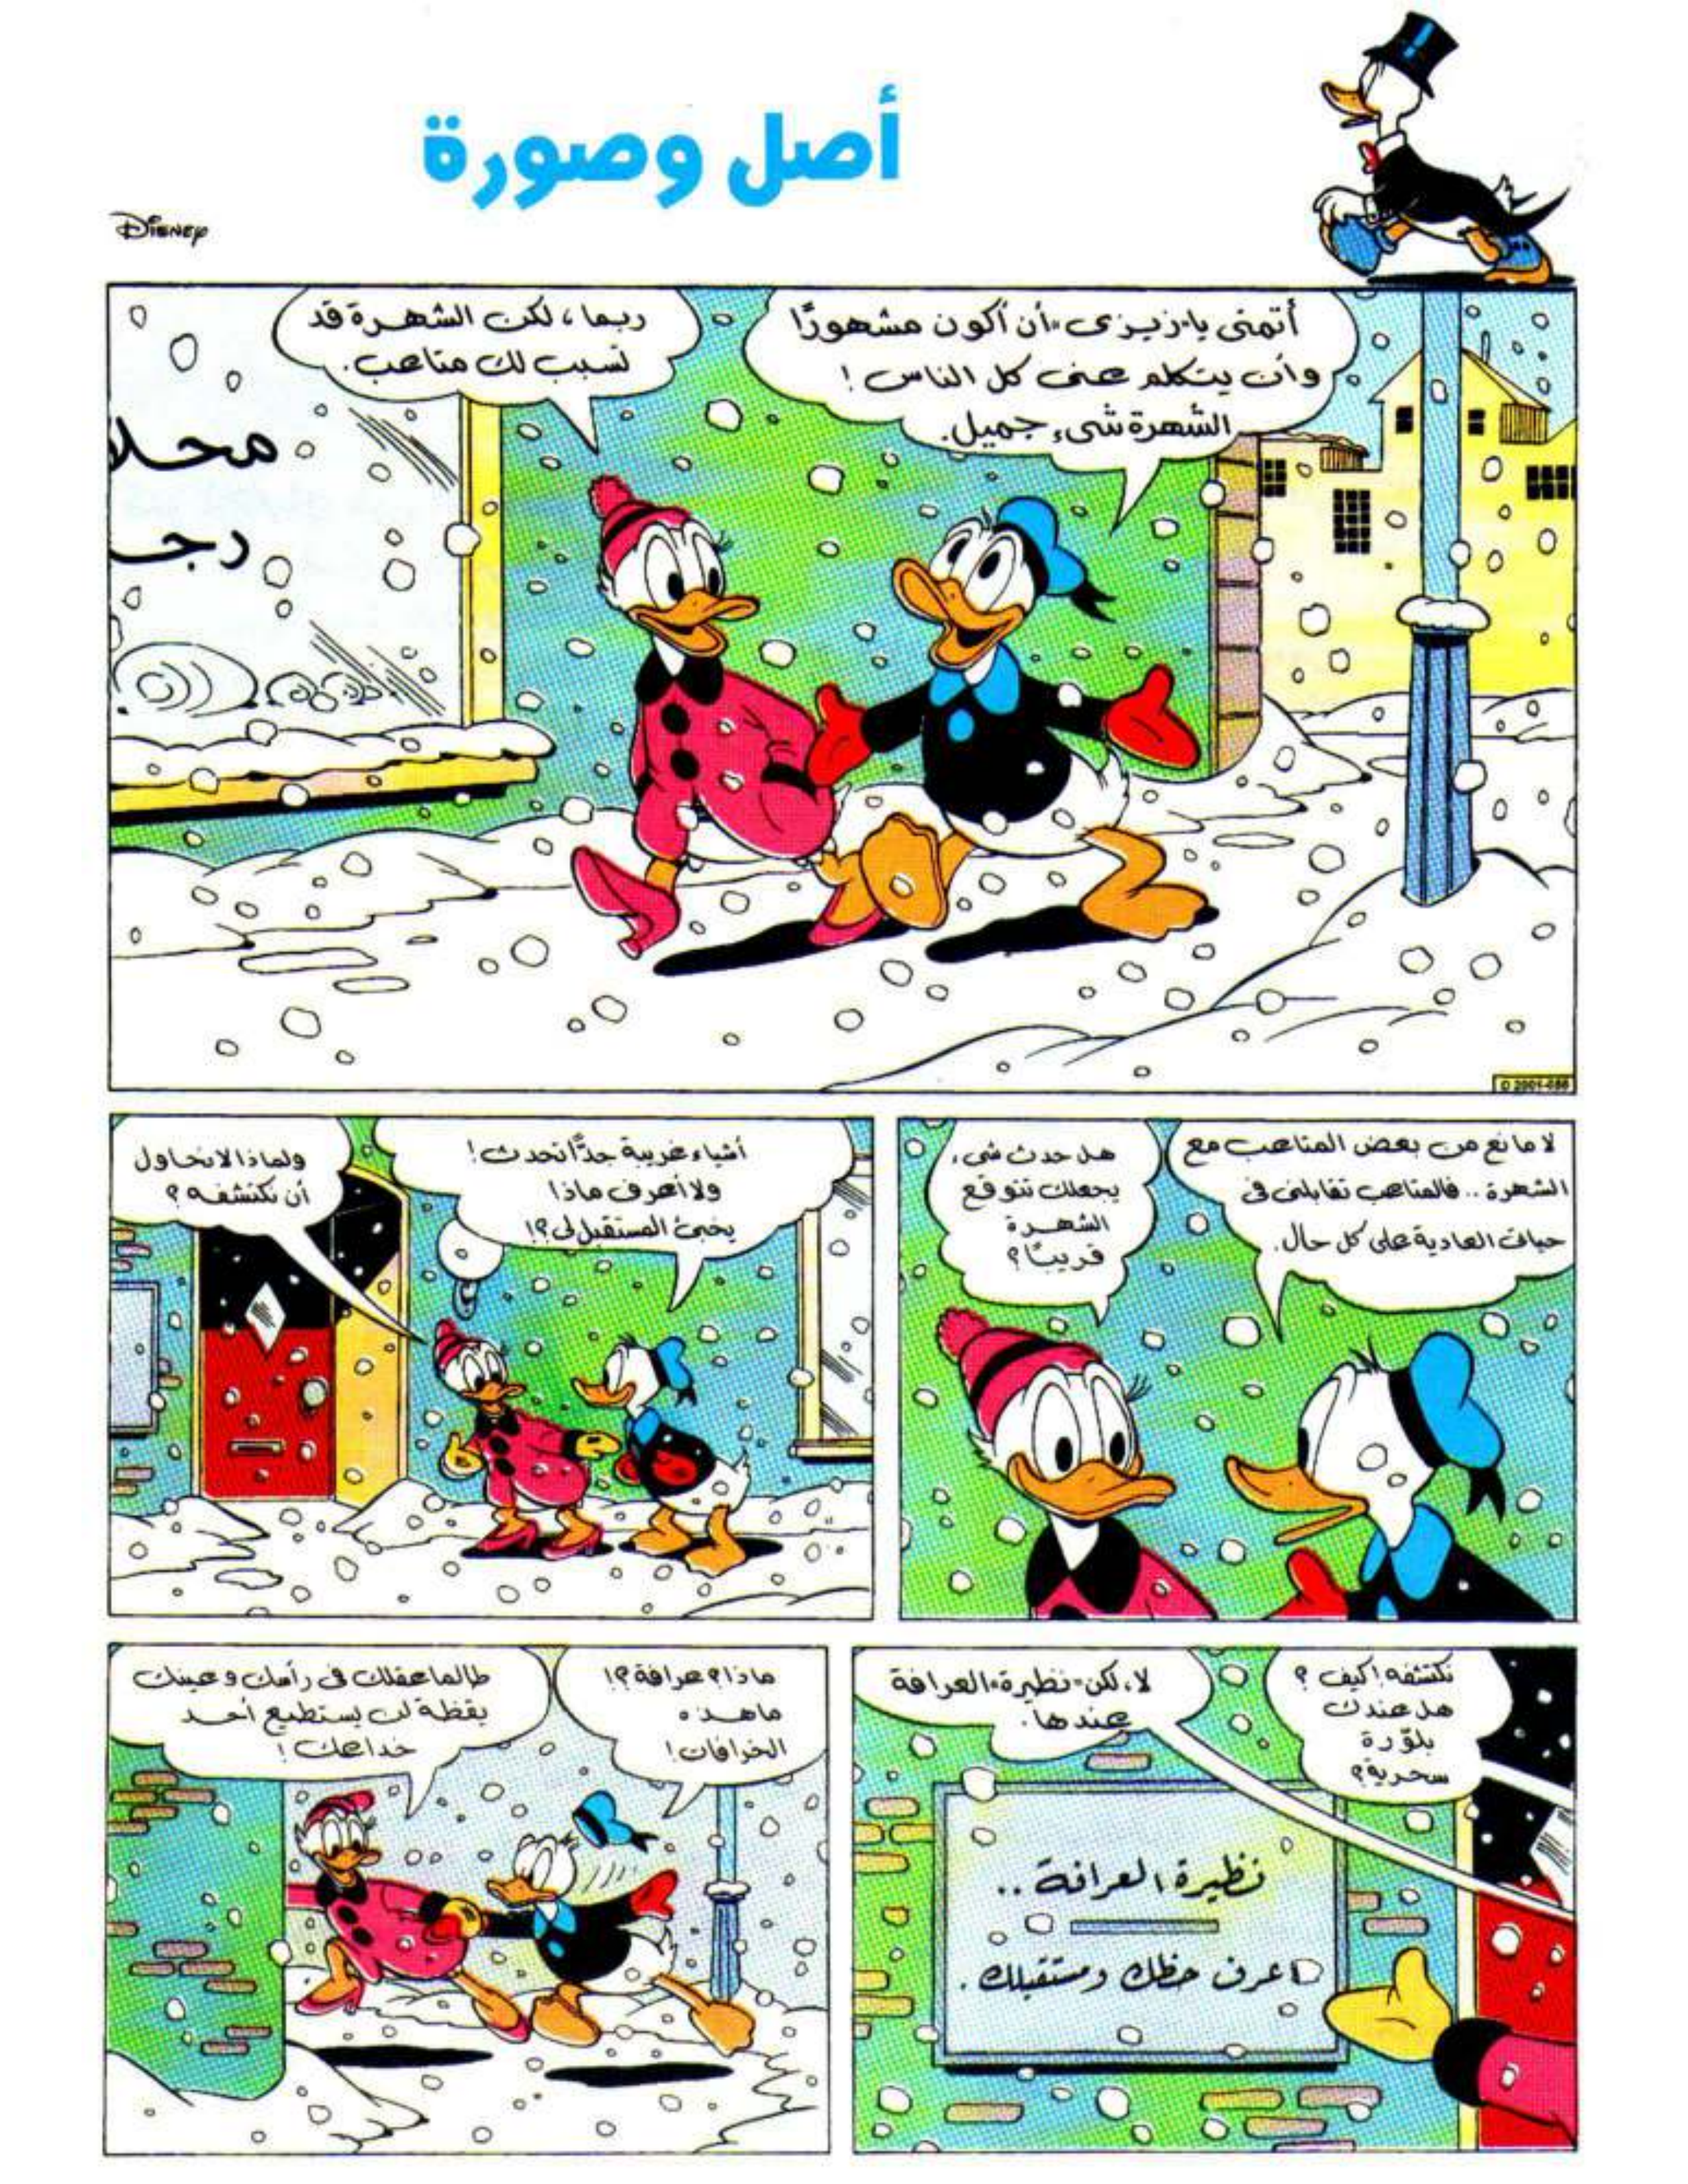 أصل وصورة
Disney
أتمنى يا "زيزى" أن أكون مشهورًا
وأن يتكلم عنى كل الناس!
الشهرة شىء جميل.
ربما، لكن الشهرة قد
تسبب لك متاعب.
محلا
رجـ
D 2001-056
لا مانع من بعض المتاعب مع
الشهرة.. فالمتاعب تقابلنى فى
حياتى العادية على كل حال.
هل حدث شىء
يجعلك تتوقع
الشهرة
قريبًا؟
أشياء غريبة جدًّا تحدث!
ولا أعرف ماذا
يخبئ المستقبل لى؟!
ولماذا لا نحاول
أن نكتشفه؟
نكتشفه! كيف؟
هل عندك
بلّورة
سحرية؟
لا، لكن "نظيرة" العرافة
عندها.
نظيرة العرافة..
اعرف حظك ومستقبلك.
ماذا؟ عرافة؟!
ما هذه
الخرافات!
طالما عقلك فى رأسك وعينك
يقظة لن يستطيع أحد
خداعك!